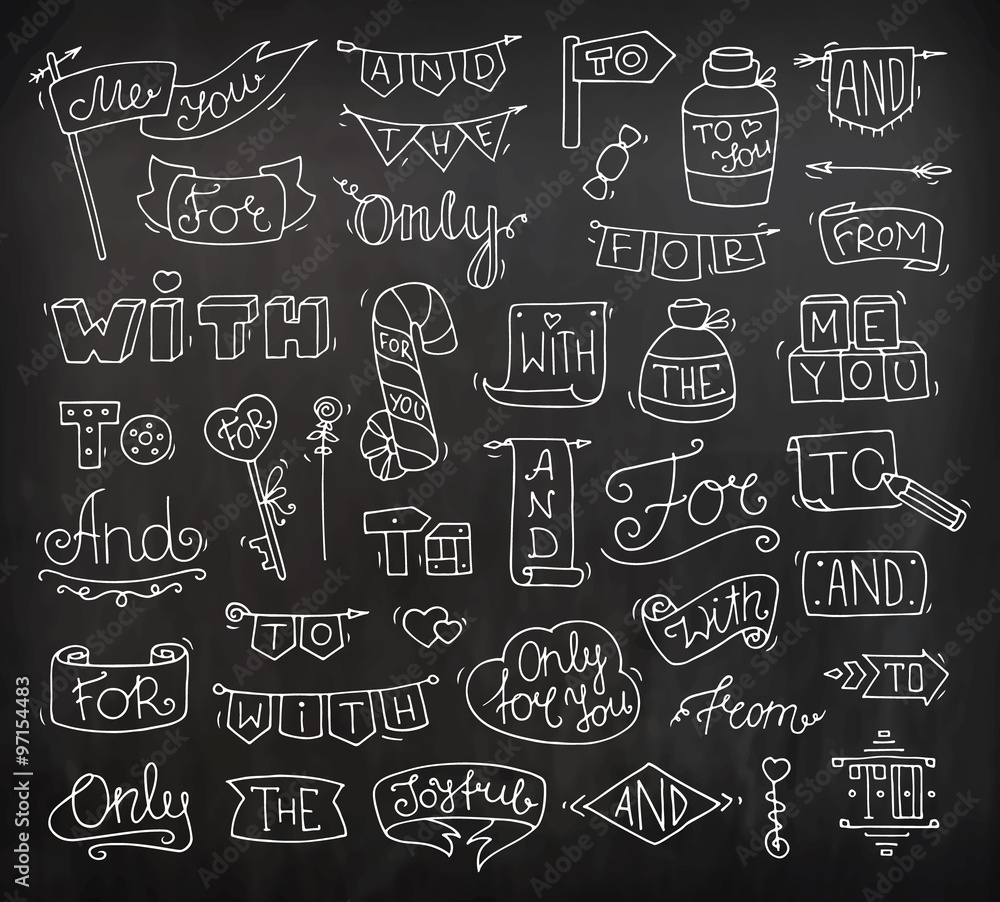 Me you
AND
TO
AND
THE
TO
you
For
Only
FOR
FROM
WiTH
FOR
YOU
WiTH
THE
ME
YOU
TO
FOR
AND
For
TO
And
TO
AND
With
TO
Only
for you
FOR
WiTH
From
TO
Only
THE
Joyful
AND
TO
Adobe Stock | #97154483